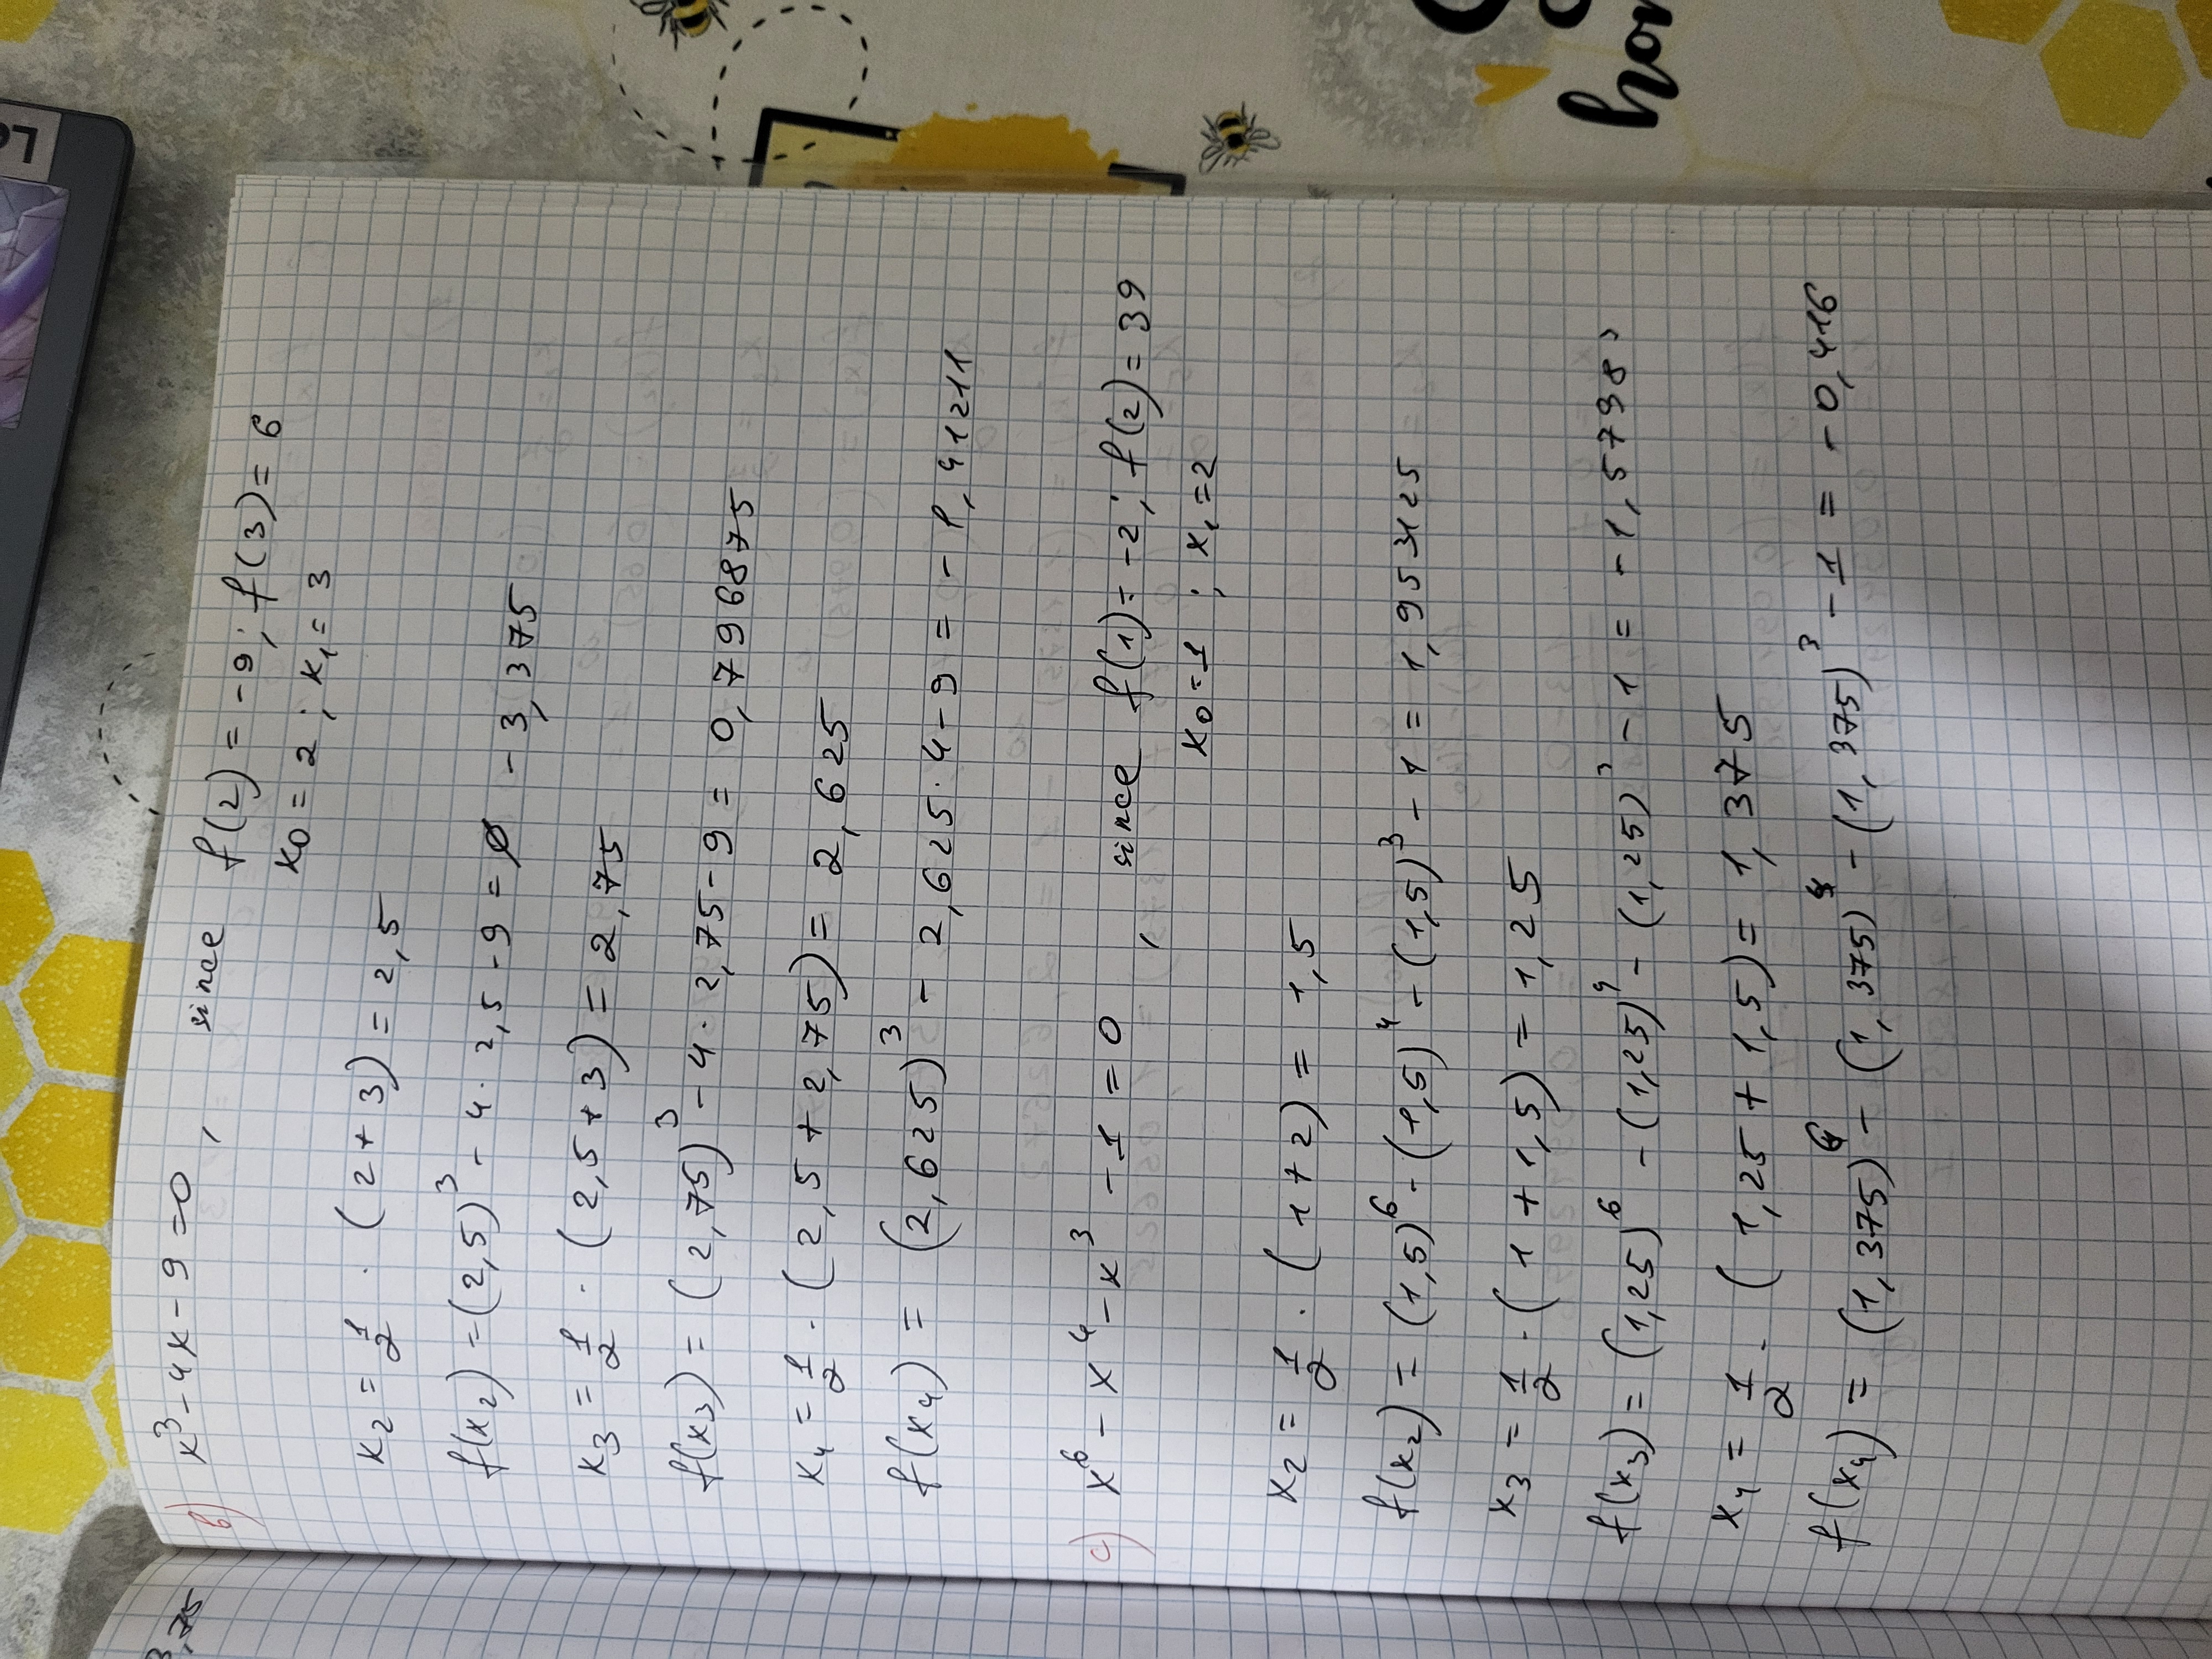 3,75
b) x³ - 4x - 9 = 0, since f(2) = -9; f(3) = 6
x₀ = 2; x₁ = 3
x₂ = 1/2 · (2 + 3) = 2,5
f(x₂) = (2,5)³ - 4 · 2,5 - 9 = - 3,375
x₃ = 1/2 · (2,5 + 3) = 2,75
f(x₃) = (2,75)³ - 4 · 2,75 - 9 = 0,796875
x₄ = 1/2 · (2,5 + 2,75) = 2,625
f(x₄) = (2,625)³ - 2,625 · 4 - 9 = -1,41211
c) x⁶ - x⁴ - x³ - 1 = 0, since f(1) = -2; f(2) = 39
x₀ = 1; x₁ = 2
x₂ = 1/2 · (1 + 2) = 1,5
f(x₂) = (1,5)⁶ - (1,5)⁴ - (1,5)³ - 1 = 1,953125
x₃ = 1/2 · (1 + 1,5) = 1,25
f(x₃) = (1,25)⁶ - (1,25)⁴ - (1,25)³ - 1 = -1,5798
x₄ = 1/2 · (1,25 + 1,5) = 1,375
f(x₄) = (1,375)⁶ - (1,375)⁴ - (1,375)³ - 1 = -0,416